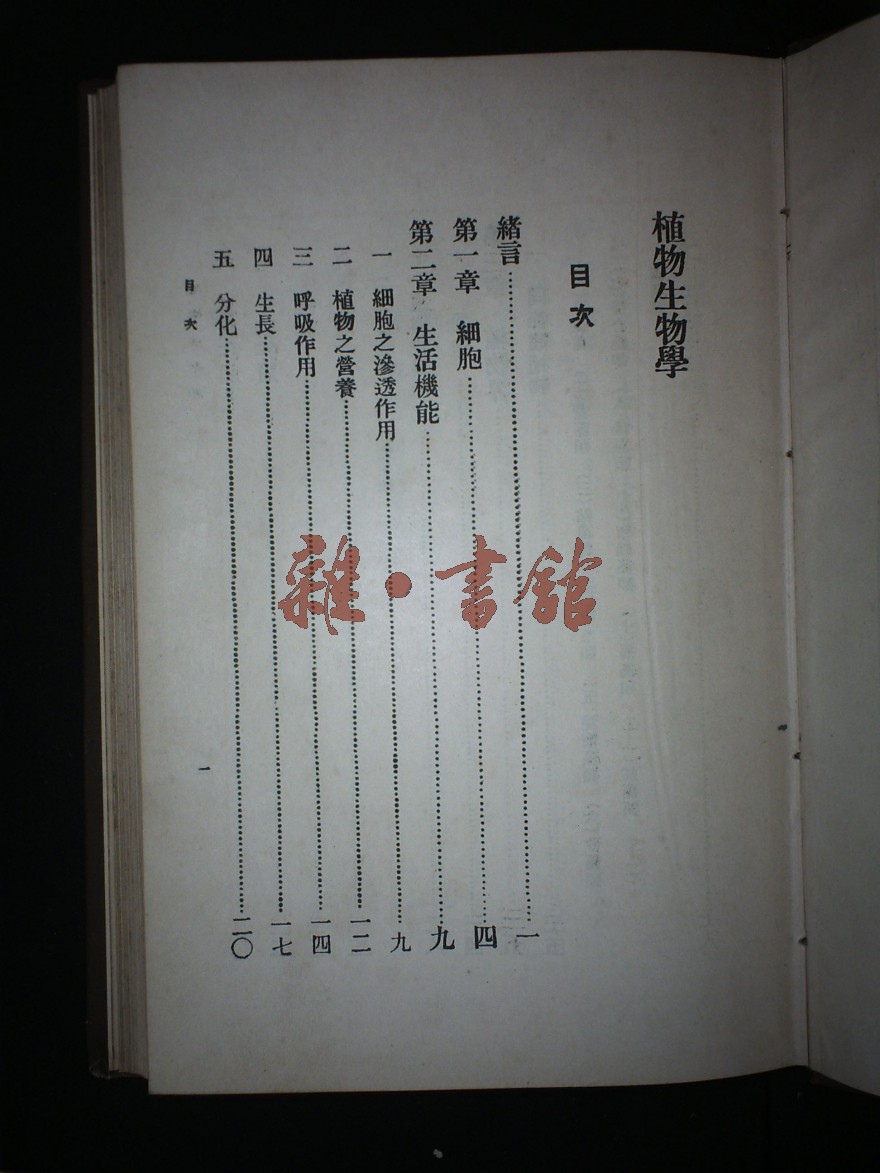 植物生物學
目次
緒言……一
第一章 細胞……四
第二章 生活機能……九
一 細胞之滲透作用……九
二 植物之營養……一二
三 呼吸作用……一四
四 生長……一七
五 分化……二〇
目次
一
雜·書館